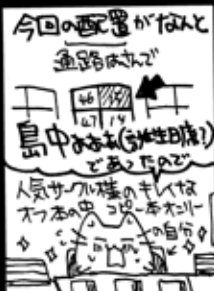 今回の配置がなんと
通路はさんで
46
47 14
島中あああ(誕生日席?)
であったので
人気サークル様のキレイな
オフ本の中 コピー本オンリー
の自分